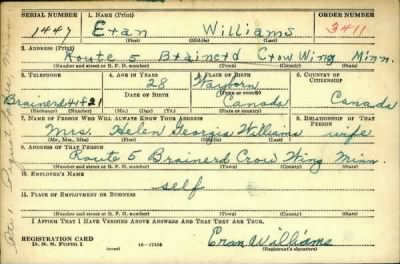 SERIAL NUMBER 1. NAME (Print) ORDER NUMBER
1447 Eran Williams 3411
(First) (Middle) (Last)
2. ADDRESS (Print)
Route 5 Brainerd Crow Wing Minn.
(Number and street or R. F. D. number) (Town) (County) (State)
3. TELEPHONE 4. AGE IN YEARS 5. PLACE OF BIRTH 6. COUNTRY OF CITIZENSHIP
28
DATE OF BIRTH (Town or county)
Brainerd Canada Canada
(Exchange) (Number) (Mo.) (Day) (Yr.) (State or country)
7. NAME OF PERSON WHO WILL ALWAYS KNOW YOUR ADDRESS 8. RELATIONSHIP OF THAT PERSON
Mrs. Helen Georgia Williams wife
(Mr., Mrs., Miss) (First) (Middle) (Last)
9. ADDRESS OF THAT PERSON
Route 5 Brainerd Crow Wing Minn.
(Number and street or R. F. D. number) (Town) (County) (State)
10. EMPLOYER'S NAME
self
11. PLACE OF EMPLOYMENT OR BUSINESS
(Number and street or R. F. D. number) (Town) (County) (State)
I AFFIRM THAT I HAVE VERIFIED ABOVE ANSWERS AND THAT THEY ARE TRUE.
REGISTRATION CARD
D. S. S. Form 1 Eran Williams
(Registrant's signature)